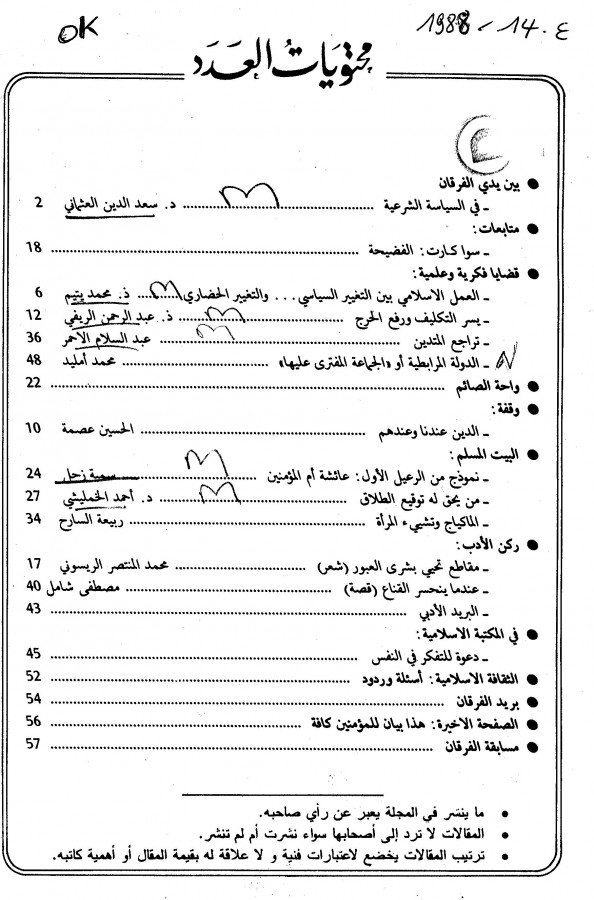 OK
1988 - 14.ع
محتويات العدد
ع
● بين يدي الفرقان
ـ في السياسة الشرعية ........ د. سعد الدين العثماني 2
● متابعات:
ـ سواكارت: الفضيحة ........ 18
● قضايا فكرية وعلمية:
ـ العمل الاسلامي بين التغيير السياسي... والتغيير الحضاري ........ ذ. محمد يتيم 6
ـ يسر التكليف ورفع الحرج ........ ذ. عبد الرحمن الريفي 12
ـ تراجع المتدين ........ عبد السلام الاحمر 36
ـ الدولة المرابطية أو «الجماعة المفترى عليها» ........ محمد أمليد 48
● واحة الصائم ........ 22
● وقفة:
ـ الدين عندنا وعندهم ........ الحسين عصمة 10
● البيت المسلم:
ـ نموذج من الرعيل الأول: عائشة أم المؤمنين ........ سمية زحل 24
ـ من يحق له توقيع الطلاق ........ د. أحمد الخمليشي 27
ـ الماكياج وتشييء المرأة ........ ربيعة السارح 34
● ركن الأدب:
ـ مقاطع تحيي بشرى العبور (شعر) ........ محمد المنتصر الريسوني 17
ـ عندما ينحسر القناع (قصة) ........ مصطفى شامل 40
ـ البريد الأدبي ........ 43
● في المكتبة الاسلامية:
ـ دعوة للتفكر في النفس ........ 45
● الثقافة الاسلامية: أسئلة وردود ........ 52
● بريد الفرقان ........ 54
● الصفحة الاخيرة: هذا بيان للمؤمنين كافة ........ 56
● مسابقة الفرقان ........ 57
● ما ينشر في المجلة يعبر عن رأي صاحبه.
● المقالات لا ترد إلى أصحابها سواء نشرت أم لم تنشر.
● ترتيب المقالات يخضع لاعتبارات فنية و لا علاقة له بقيمة المقال أو أهمية كاتبه.